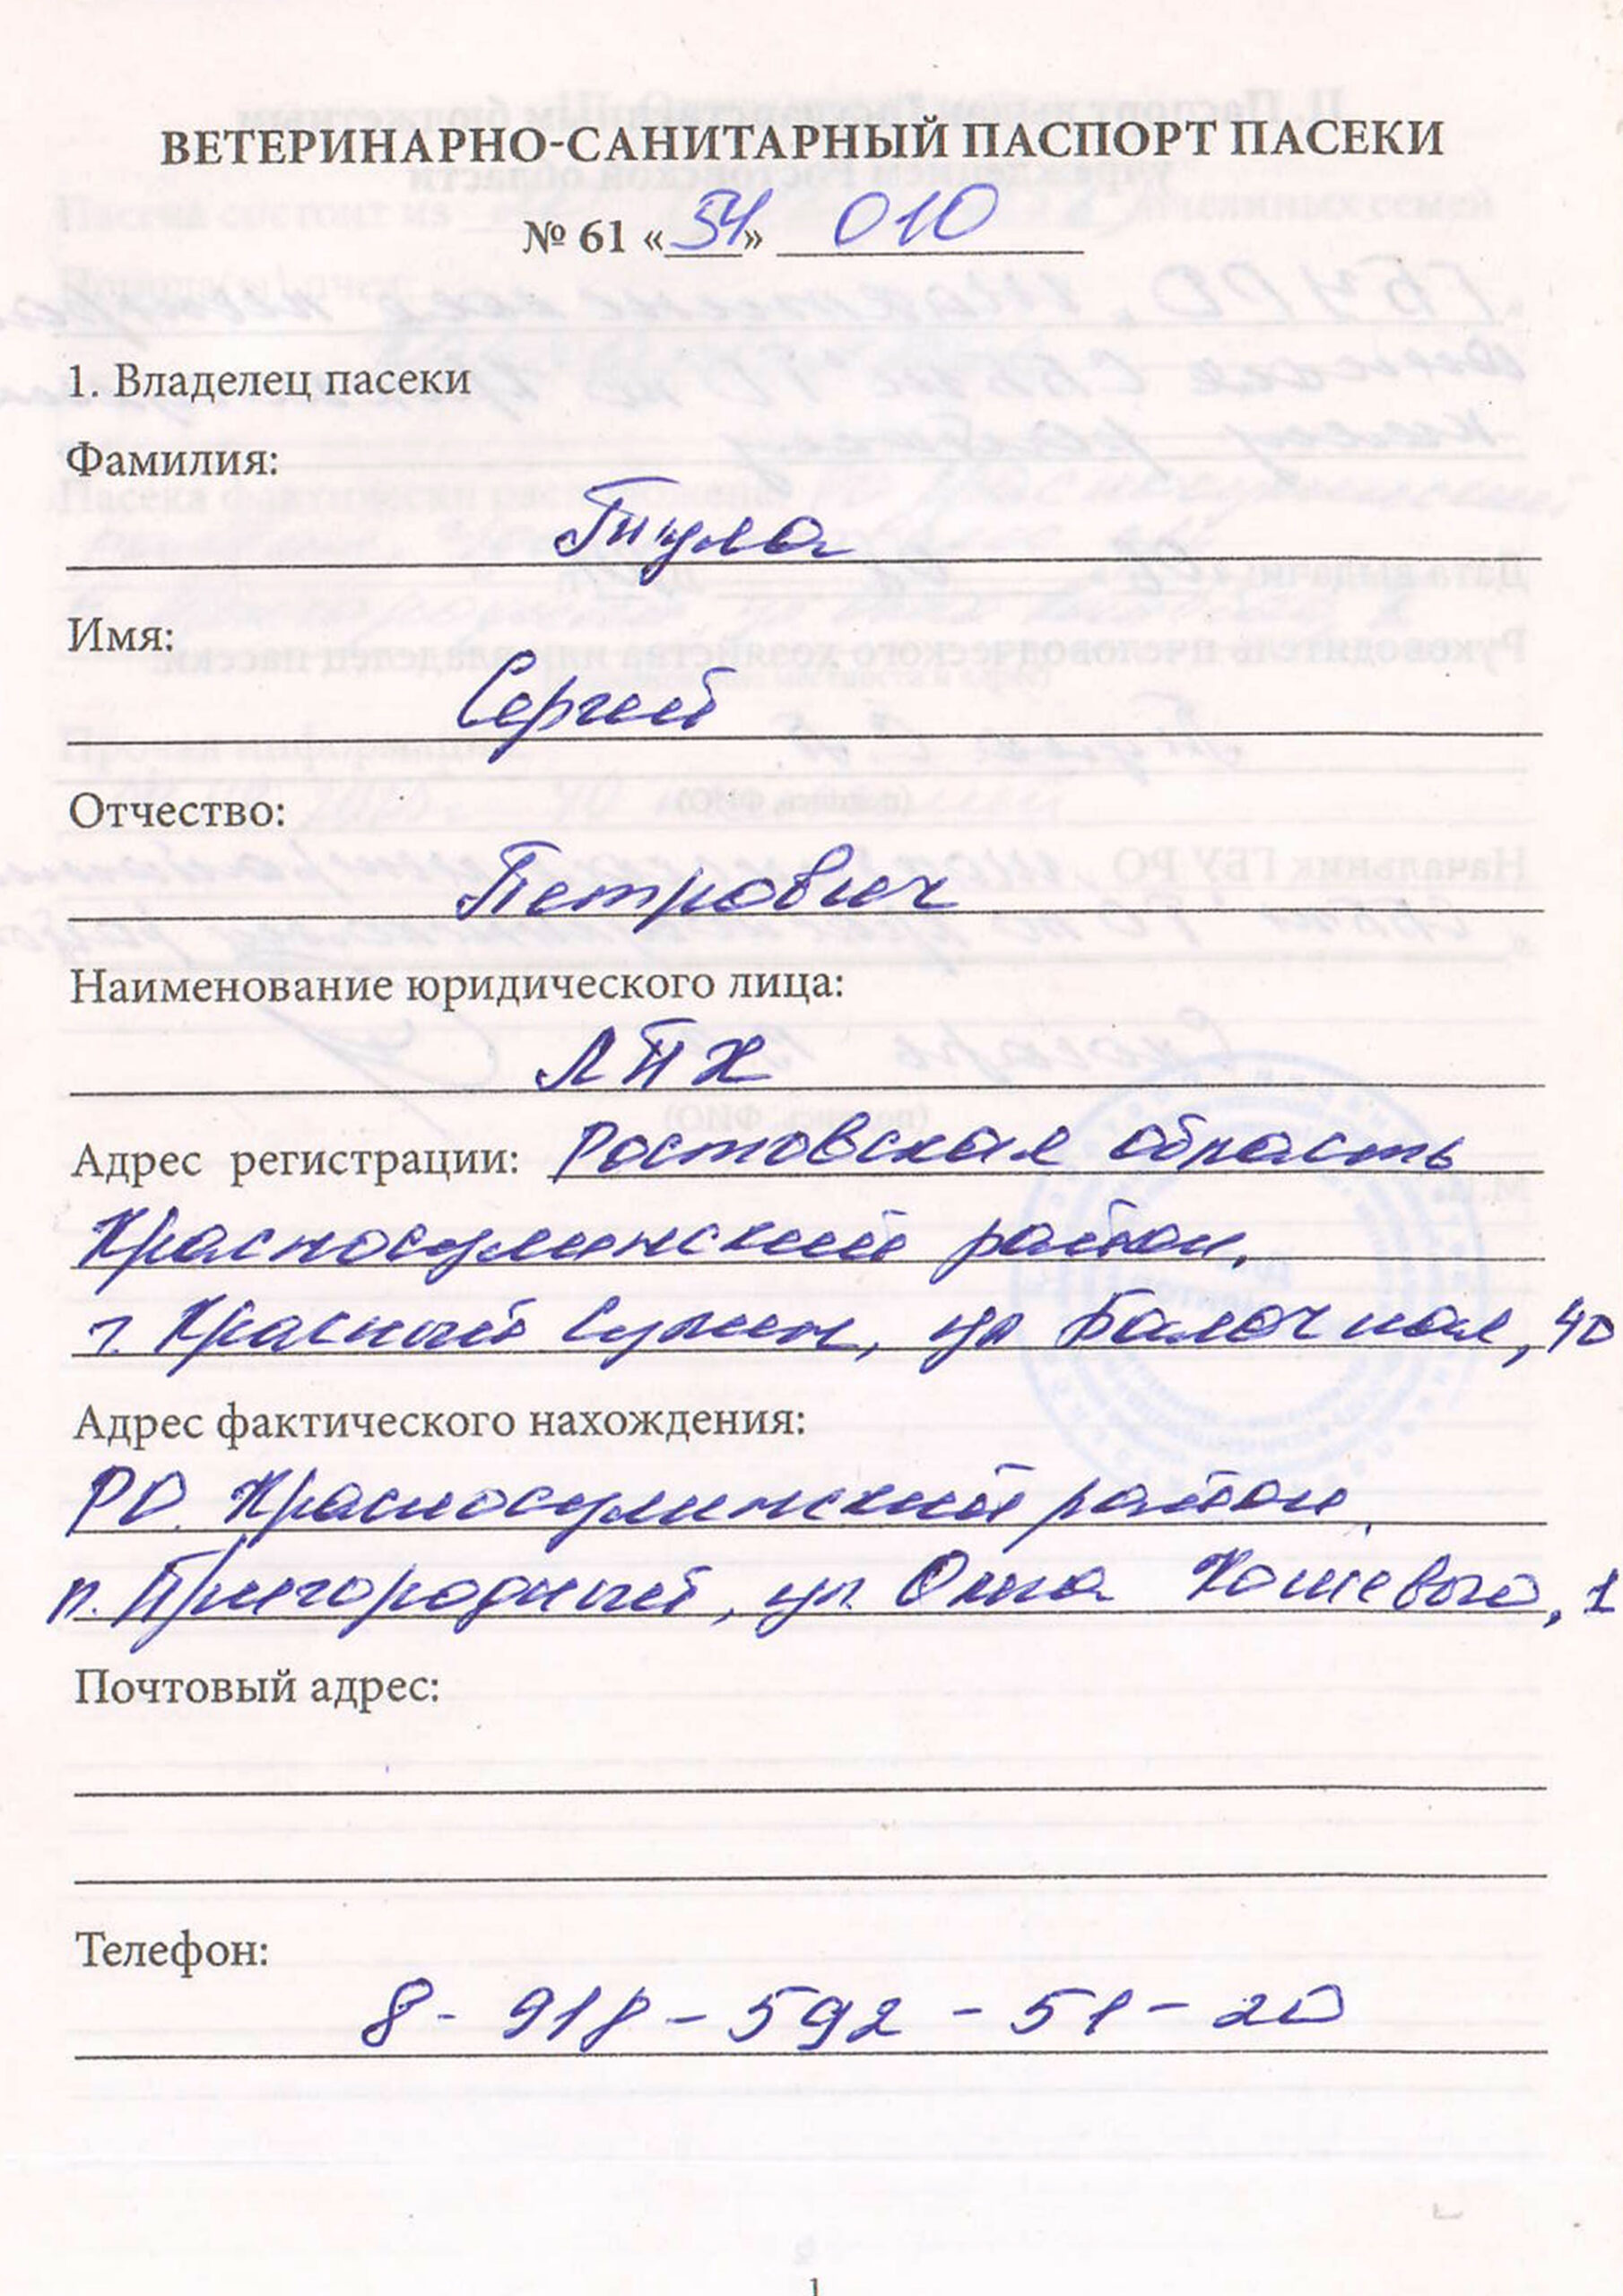 ВЕТЕРИНАРНО-САНИТАРНЫЙ ПАСПОРТ ПАСЕКИ
№ 61 «54» 010
1. Владелец пасеки
Фамилия:
Тпула
Имя:
Сергей
Отчество:
Петрович
Наименование юридического лица:
ЛПХ
Адрес регистрации: Ростовская область
Красносулинский район,
г. Красный Сулин, ул Балочная, 40
Адрес фактического нахождения:
РО. Красносулинский район
п. Пригородный, ул. Олега Кошевого, 1
Почтовый адрес:
Телефон:
8-918-592-51-20
1